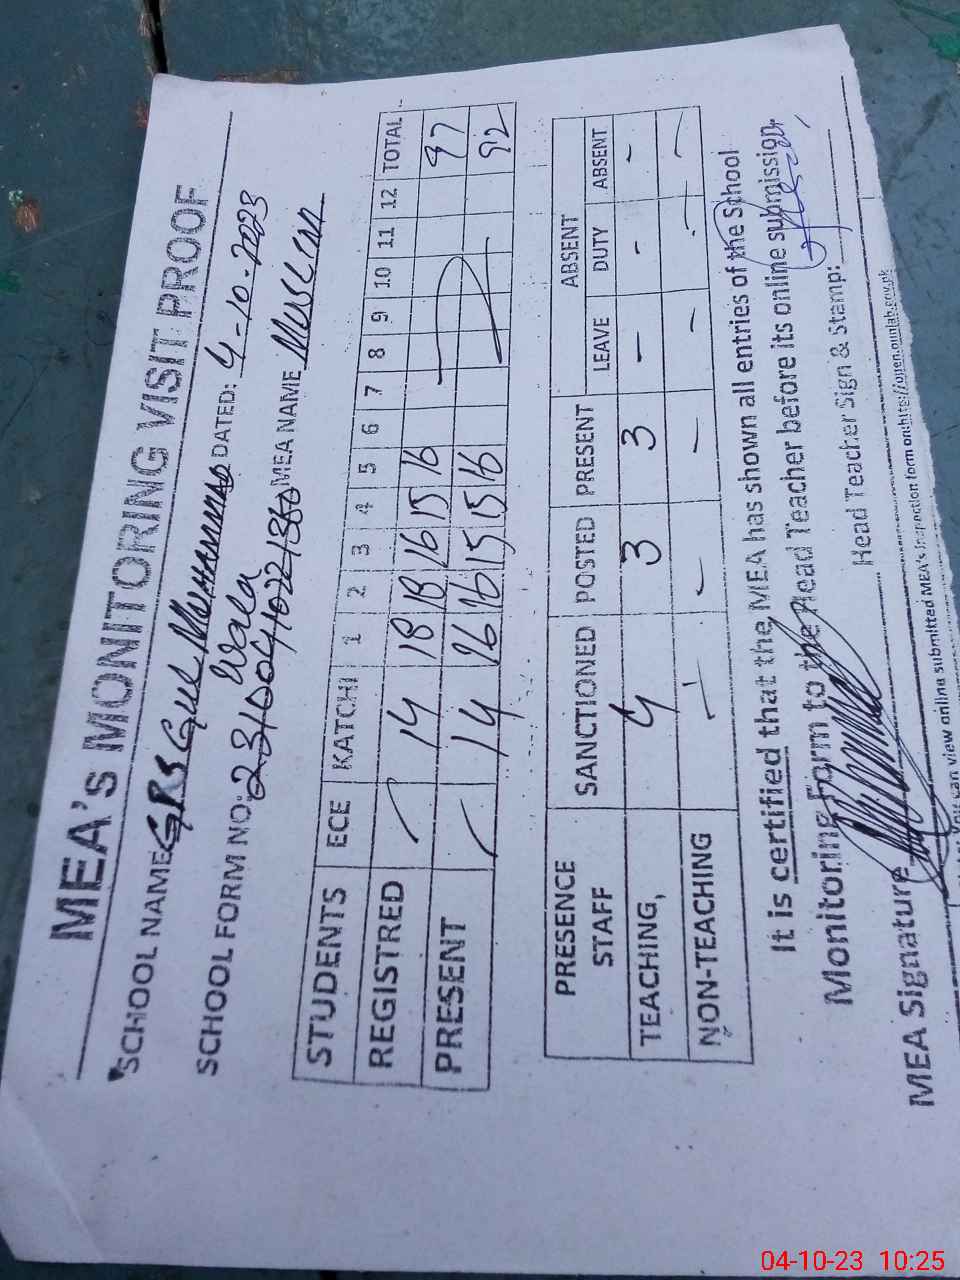 MEA's MONITORING VISIT PROOF
SCHOOL NAME GPS Gul Muhammad Wala DATED: 4-10-2023
SCHOOL FORM NO: MEA NAME
STUDENTS ECE KATCHI 1 2 3 4 5 6 7 8 9 10 11 12 TOTAL
REGISTRED 14 18 18 16 15 16 97
PRESENT 14 16 16 15 15 16 92
PRESENCE STAFF SANCTIONED POSTED PRESENT ABSENT
LEAVE DUTY ABSENT
TEACHING, 4 3 3 - - -
NON-TEACHING - - - - - -
It is certified that the MEA has shown all entries of the School
Monitoring Form to the Head Teacher before its online submission.
MEA Signature Head Teacher Sign & Stamp:
You can view online submitted MEA's inspection form on:http://open.punjab.gov.pk
04-10-23 10:25